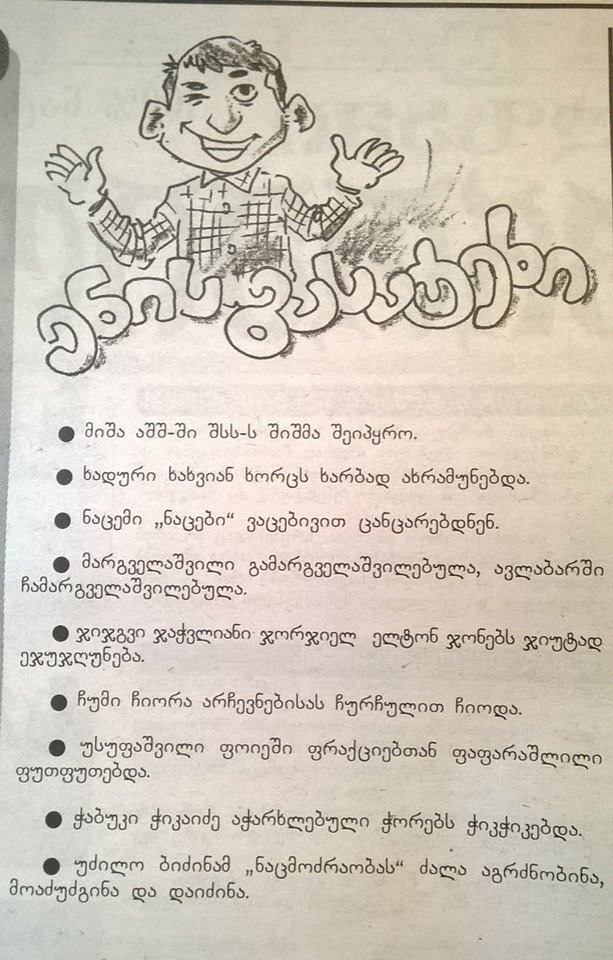 ენის გასატეხი
● მიშა აშშ-ში შსს-ს შიშმა შეიპყრო.
● ხადური ხახვიან ხორცს ხარბად ახრამუნებდა.
● ნაცემი „ნაცები“ ვაცებივით ცანცარებდნენ.
● მარგველაშვილი გამარგველაშვილებულა, ავლაბარში
ჩამარგველაშვილებულა.
● ჯიჯგვი ჯაჭვლიანი ჯორჯიელ ელტონ ჯონებს ჯიუტად
ეჯუჯღუნება.
● ჩუმი ჩიორა არჩევნებისას ჩურჩულით ჩიოდა.
● უსუფაშვილი ფოიეში ფრაქციებთან ფაფარაშლილი
ფუთფუთებდა.
● ჭაბუკი ჭიკაიძე აჭარხლებული ჭორებს ჭიკჭიკებდა.
● უძილო ბიძინამ „ნაცმოძრაობას“ ძალა აგრძნობინა,
მოაძუძგინა და დაიძინა.